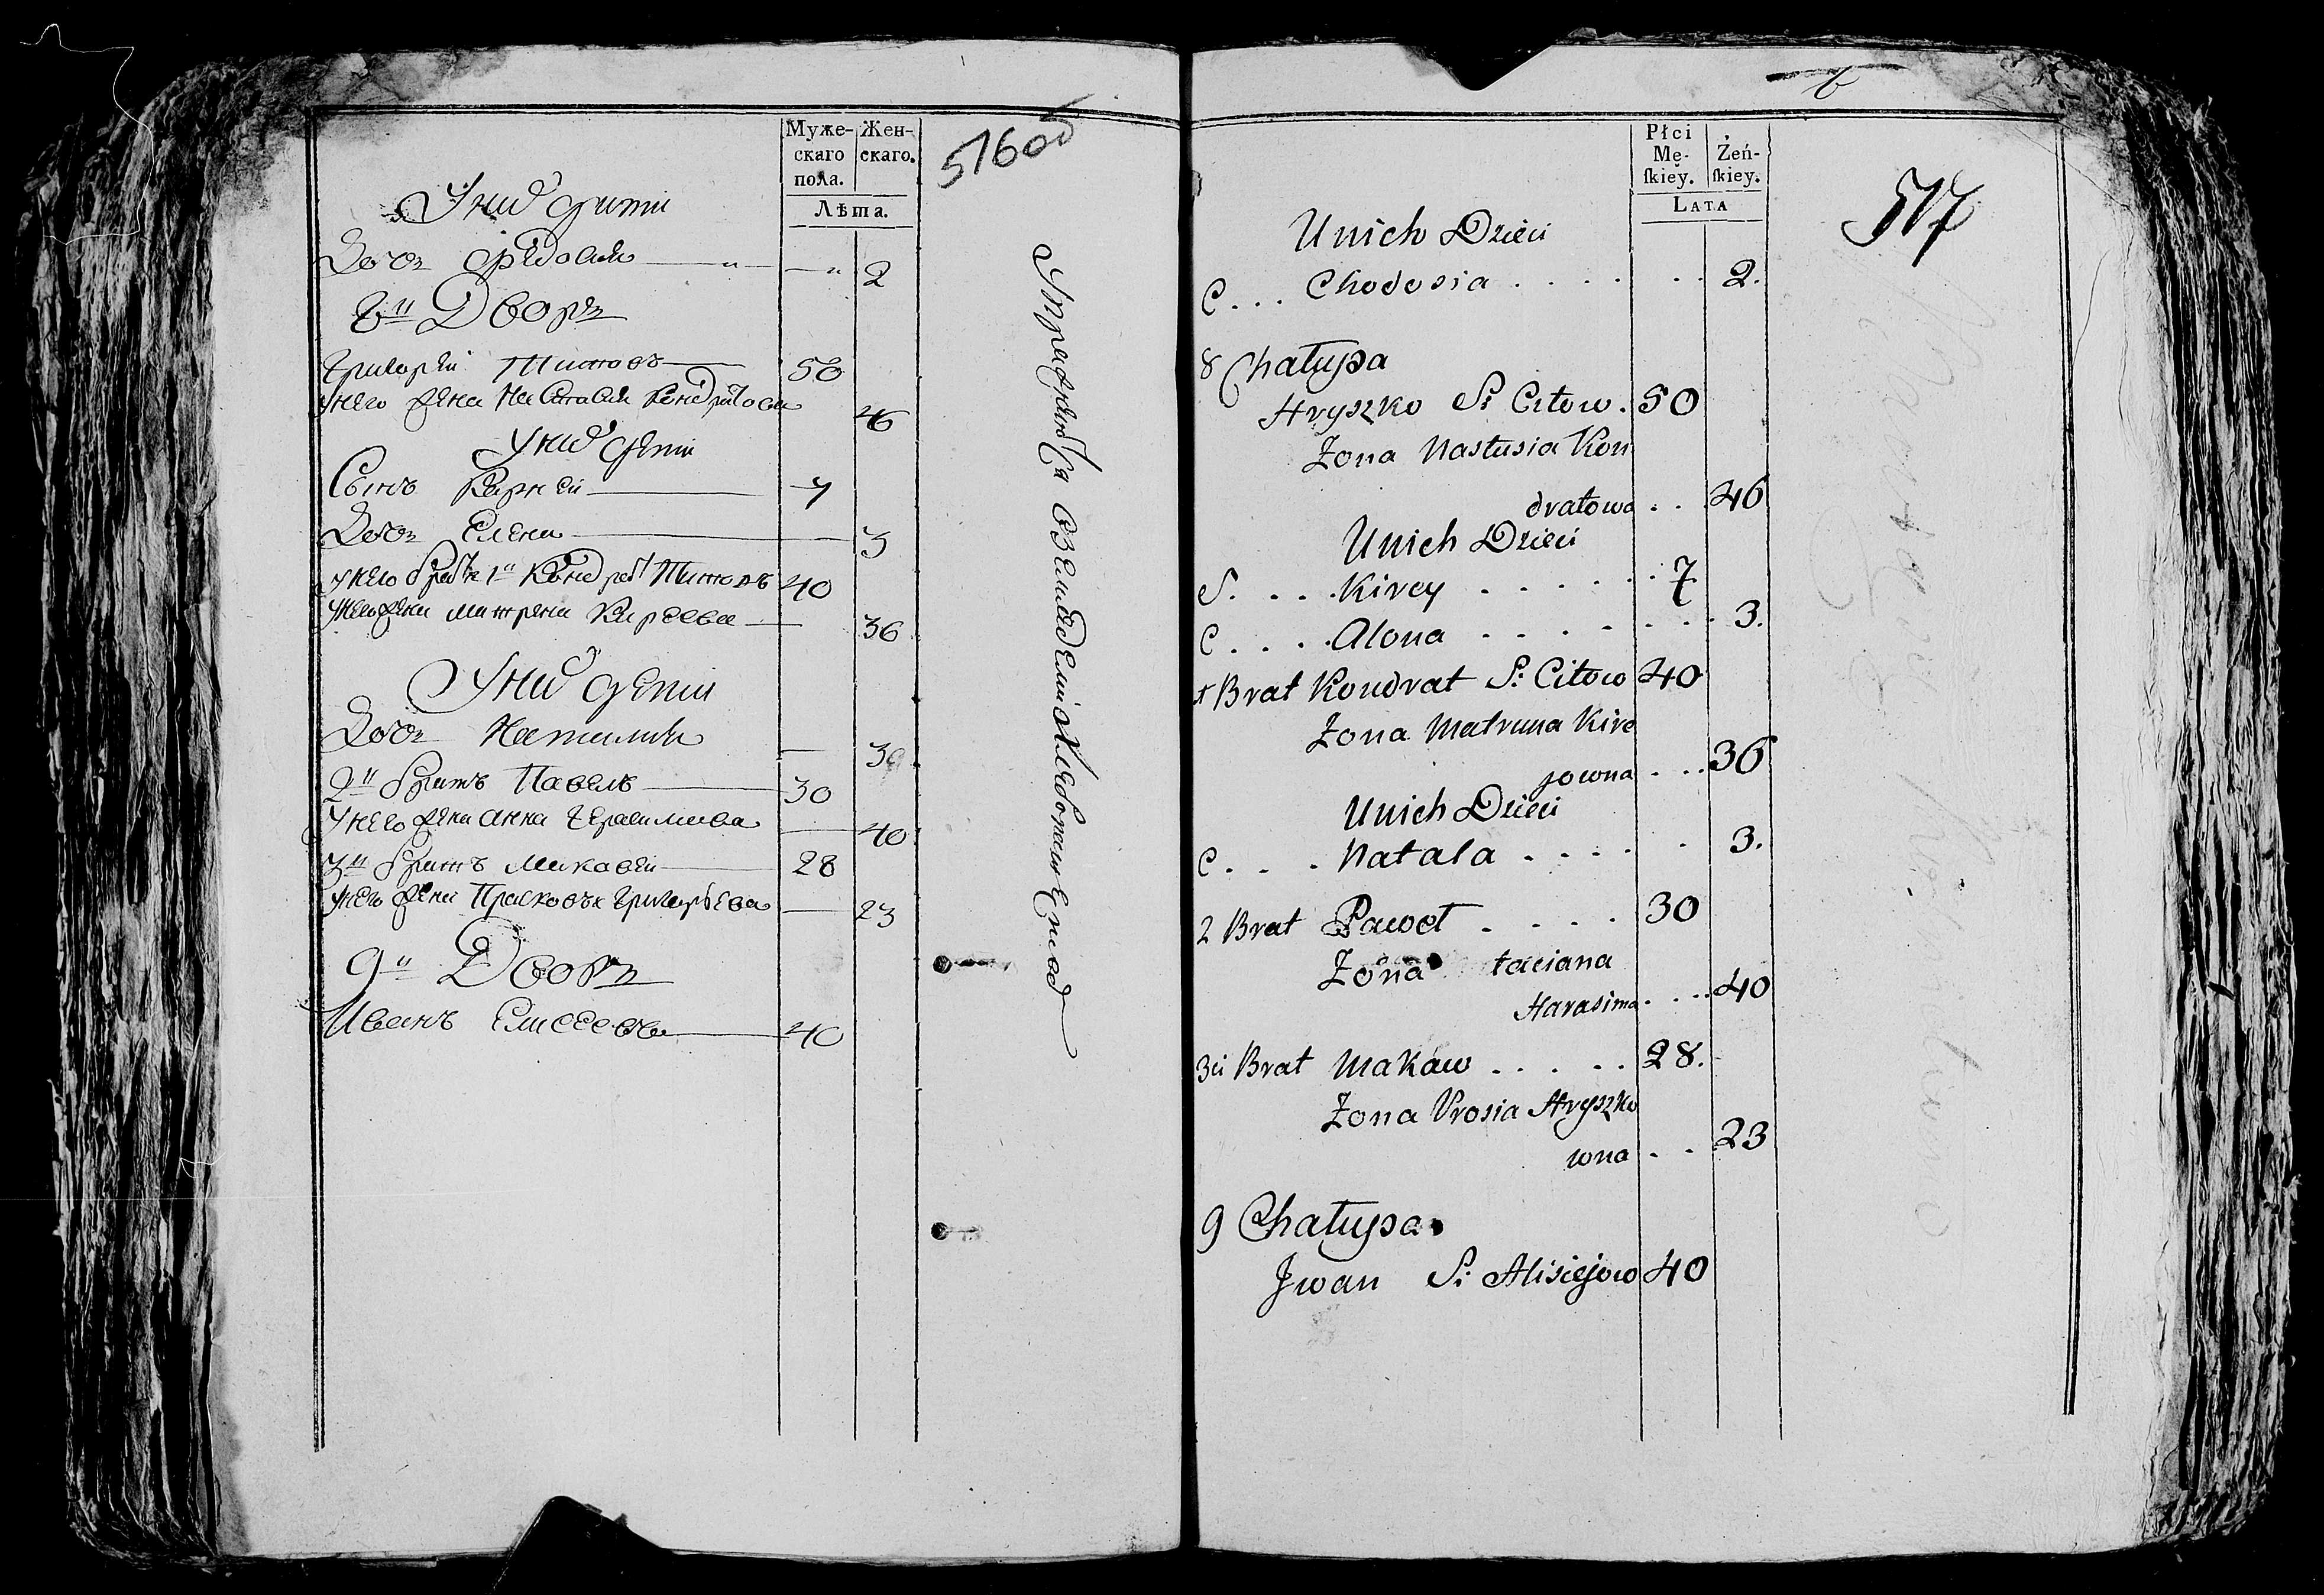 Муже-
скаго
пола.
Жен-
скаго.
Лѣта.
516 об
У них дети
Дочь Федосья 2
8й Дворъ
Григорей Титовъ 50
У него жена Настасья Кондратова 46
У них дети
Сынъ Кирей 7
Дочь Елена 3
У него братъ 1й Кондрат Титовъ 40
У него жена Матрена Киреева 36
У них дети
Дочь Наталья 3
2й братъ Павелъ 30
У него жена Анна Герасимова 40
3й братъ Макавей 28
У него жена Прасковья Григорьева 23
9й Дворъ
Иванъ Елисеевъ 40
б
Płci
Mę-
ſkiey.
Żeń-
ſkiey.
LATA
517
Unich Dzieci
C... Chodosia . . . . . . 2.
8 Chałupa
Hryszko S: Citow. 50
Żona Nastusia Kon
dratowa . . . 46
Unich Dzieci
S. . . . Kirey . . . . . . 7
C. . . . Alona . . . . . . . . 3.
1 Brat Kondrat S: Citow 40
Żona Matruna Kire
jowna . . . 36
Unich Dzieci
C. . . . Natala . . . . . 3.
2 Brat Paweł . . . . 30
Żona taciana
Harasima . . . . 40
3ci Brat Makaw . . . . . 28.
Żona Prosia Hryszko
wna . . 23
9 Chałupa
Jwan S: Alisiejow 40